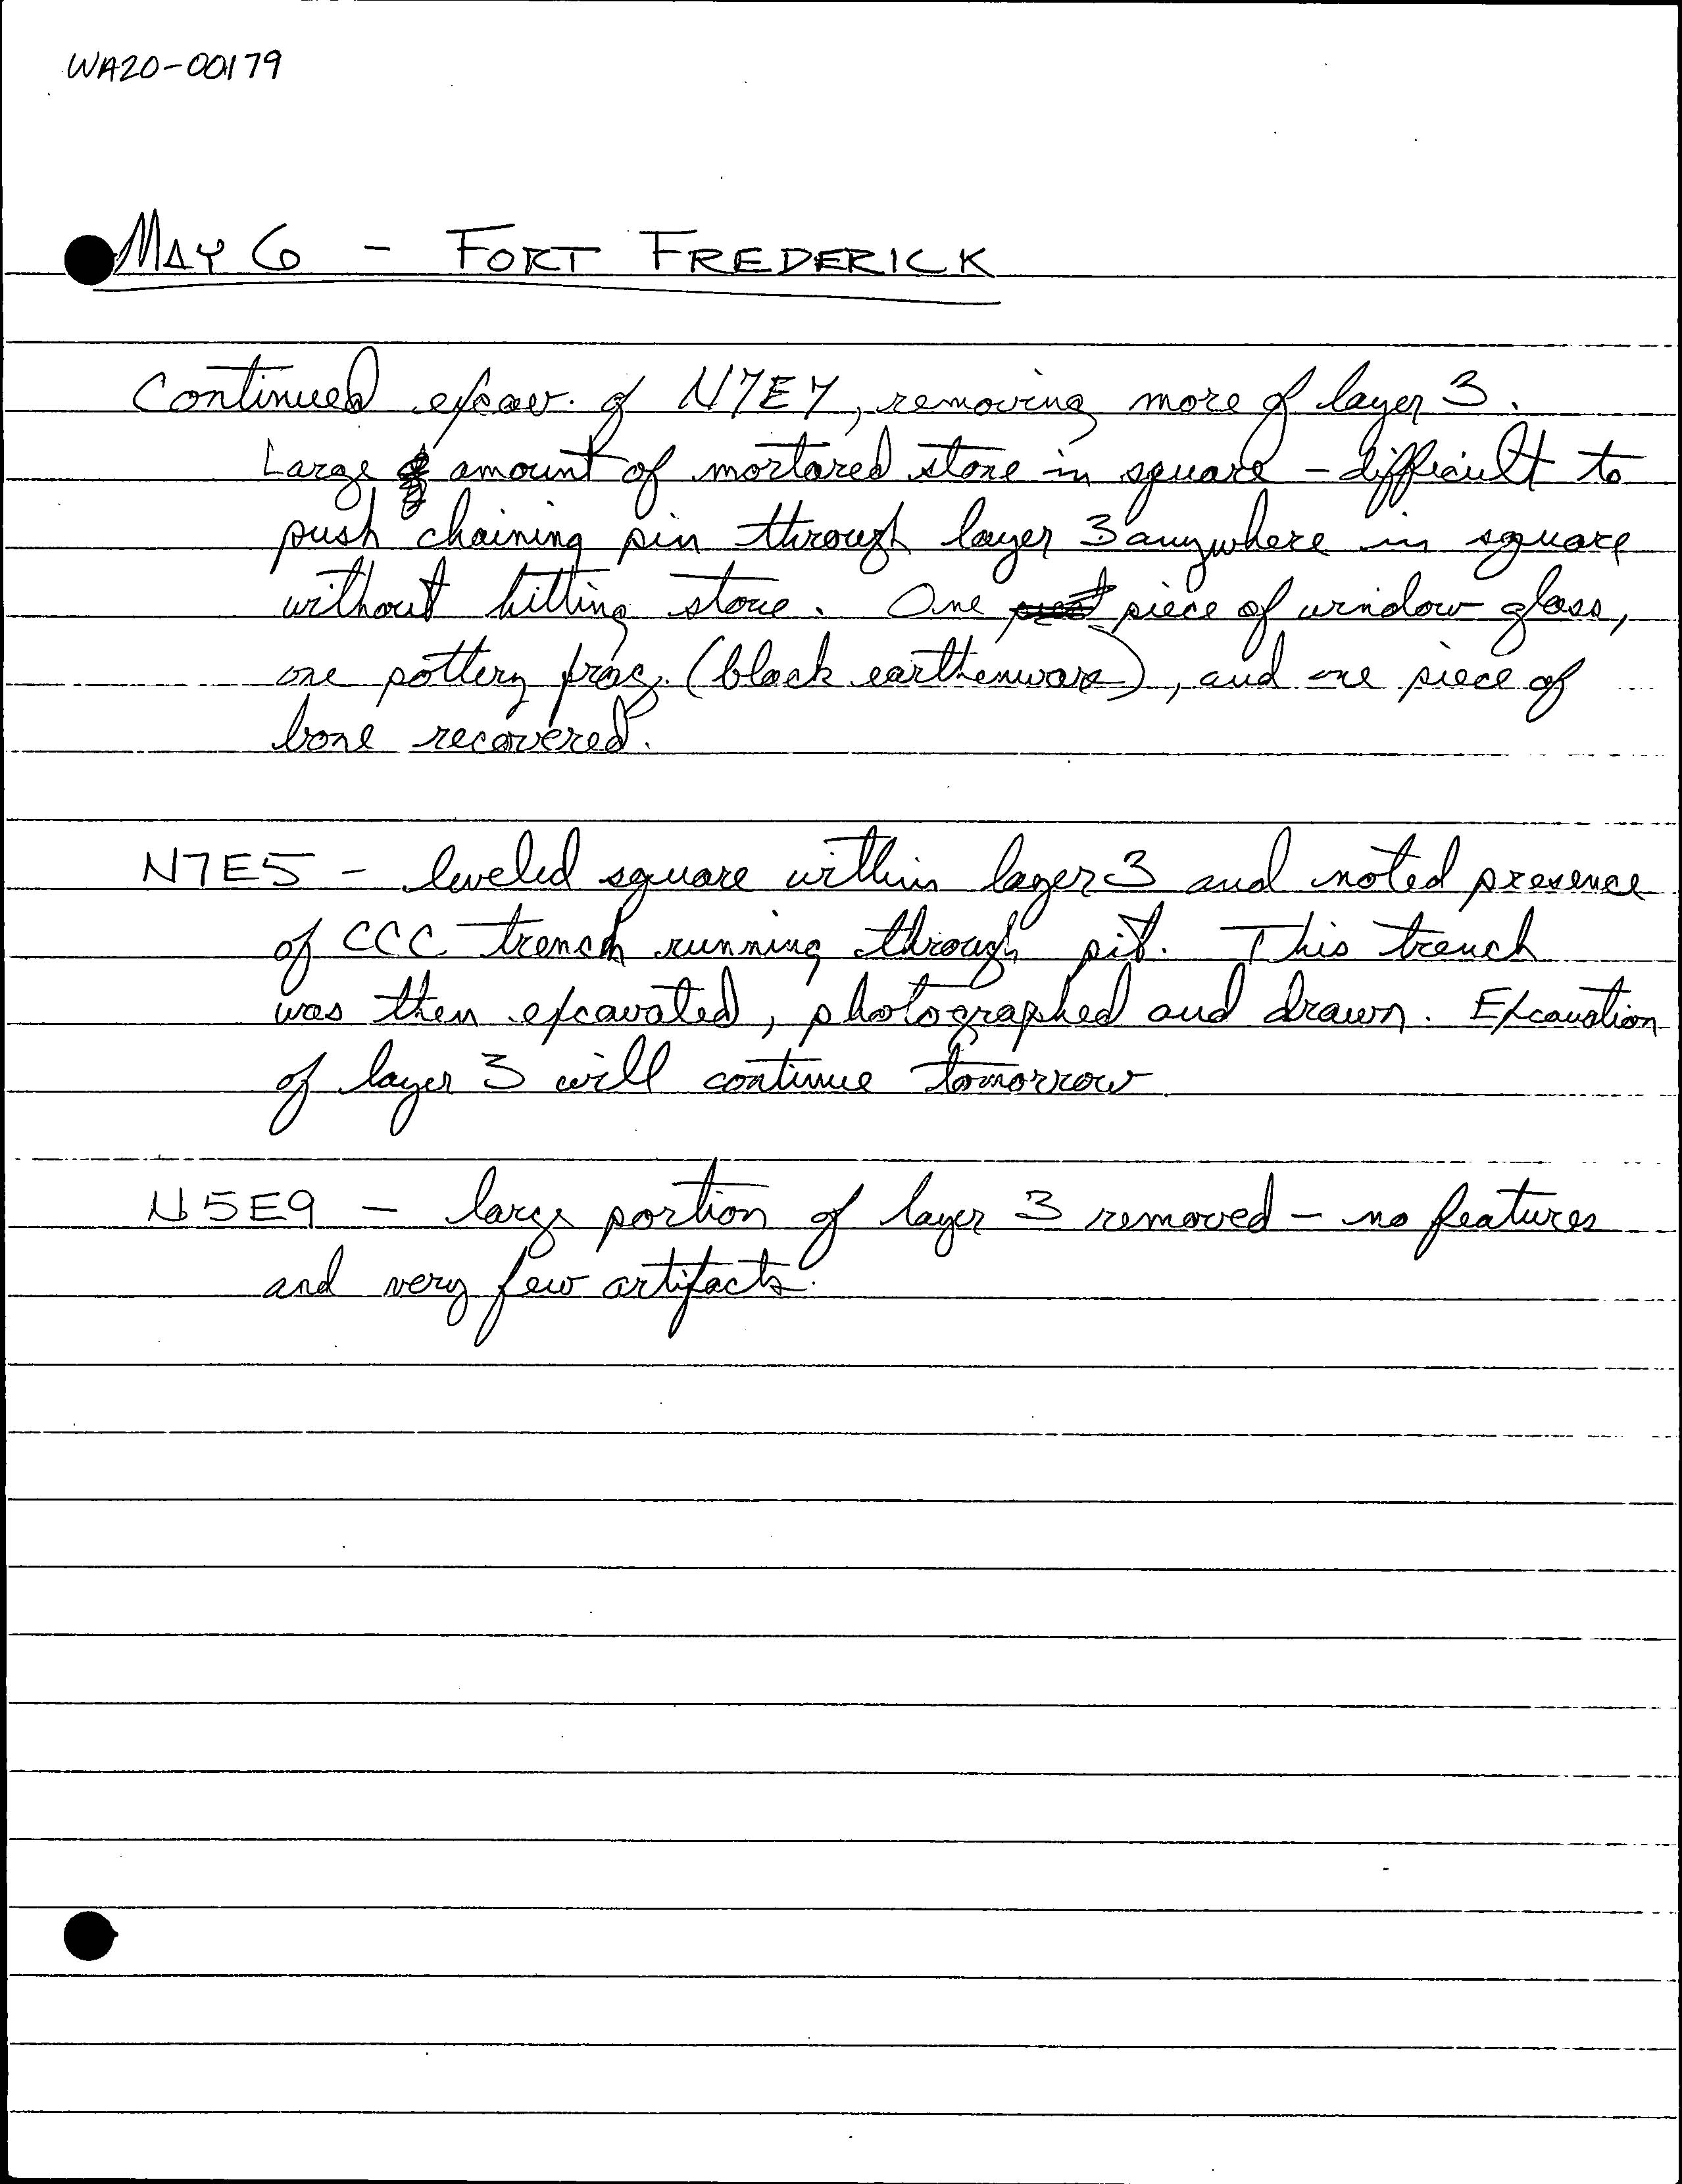 WA20-00179
MAY 6 - FORT FREDERICK
Continued excav. of N7E7, removing more of layer 3.
Large amount of mortared stone in square - difficult to
push chaining pin through layer 3 anywhere in square
without hitting stone. One piece of window glass,
one pottery frag. (black earthenware), and one piece of
bone recovered.
N7E5 - leveled square within layer 3 and noted presence
of CCC trench running through pit. This trench
was then excavated, photographed and drawn. Excavation
of layer 3 will continue tomorrow
N5E9 - large portion of layer 3 removed - no features
and very few artifacts.